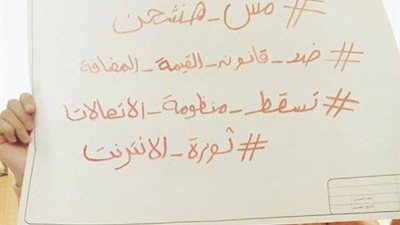 #مش_هنشحن
#ضد_قانون_القيمة_المضافة
#تسقط_منظومة_الاتصالات
#ثورة_الانترنت